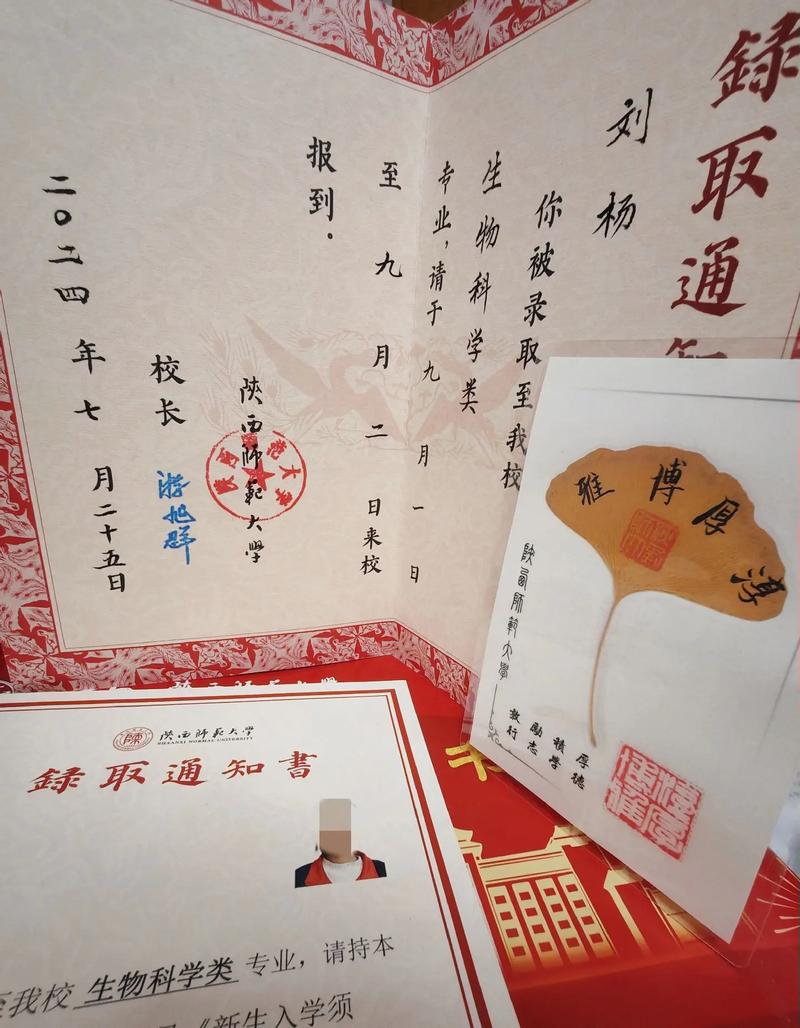 録取通知
刘杨
你被录取至我校
生物科学类
专业，请于九月一日
至九月二日来校
报到。
陝西師範大學
校长 游旭群
二〇二四年七月二十五日
淳厚博雅
陝西師範大學
厚德
積學
勵志
敦行
陝西師範大學
SHAANXI NORMAL UNIVERSITY
録取通知書
我校 生物科学类 专业，请持本
《新生入学须